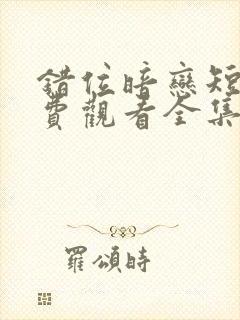 錯位暗戀短
費觀看全集
羅頌時